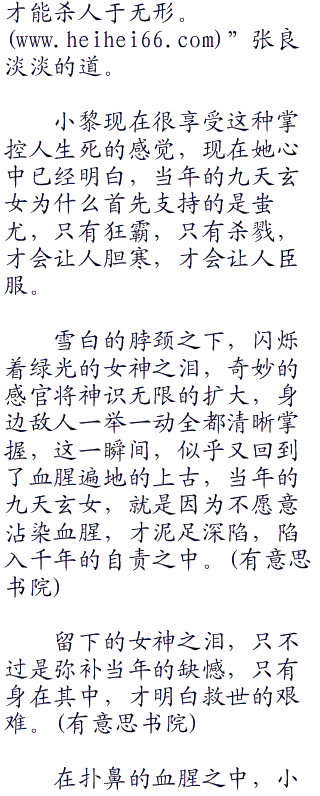 才能杀人于无形。
(www.heihei66.com)”张良
淡淡的道。
小黎现在很享受这种掌
控人生死的感觉，现在她心
中已经明白，当年的九天玄
女为什么首先支持的是蚩
尤，只有狂霸，只有杀戮，
才会让人胆寒，才会让人臣
服。
雪白的脖颈之下，闪烁
着绿光的女神之泪，奇妙的
感官将神识无限的扩大，身
边敌人一举一动全都清晰掌
握，这一瞬间，似乎又回到
了血腥遍地的上古，当年的
九天玄女，就是因为不愿意
沾染血腥，才泥足深陷，陷
入千年的自责之中。(有意思
书院)
留下的女神之泪，只不
过是弥补当年的缺憾，只有
身在其中，才明白救世的艰
难。(有意思书院)
在扑鼻的血腥之中，小